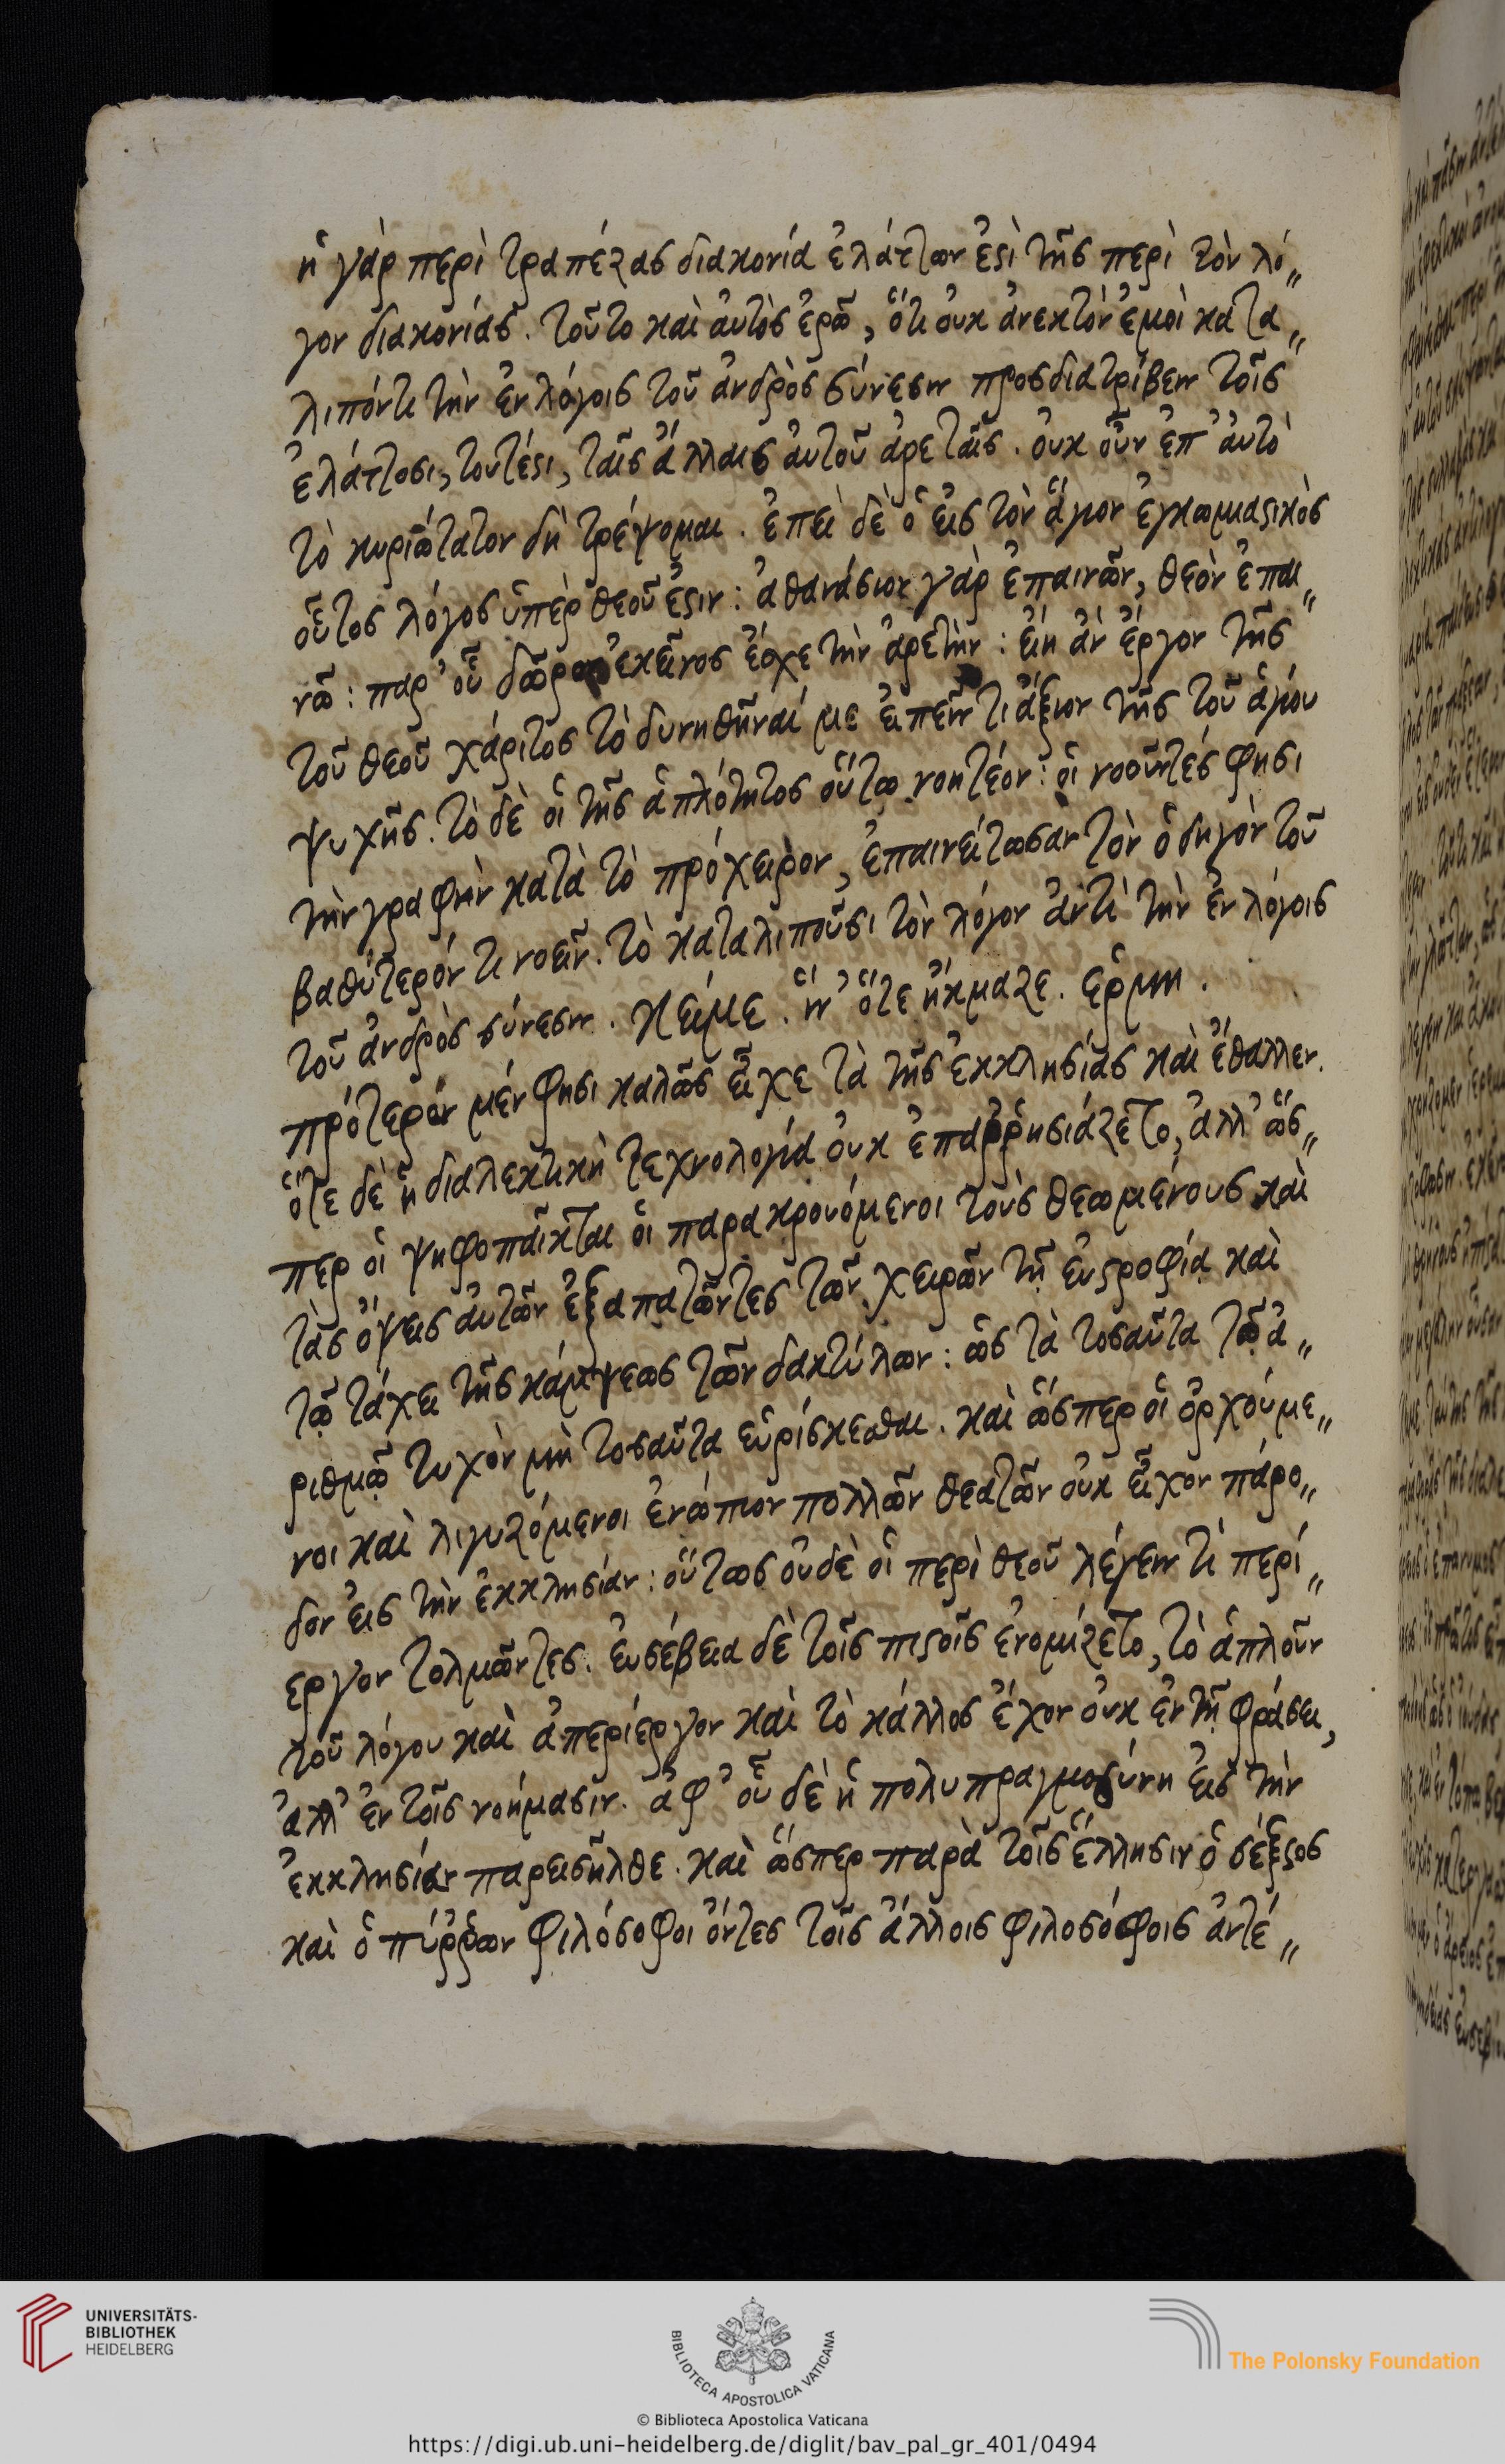 ἡ γὰρ περὶ τραπέζας διακονία ἐλάττων ἐστὶ τῆς περὶ τὸν λό„
γον διακονίας. τοῦτο καὶ αὐτὸς ἐρῶ, ὅτι οὐκ ἀνεκτὸν ἐμοὶ κατα„
λιπόντι τὴν ἐν λόγοις τοῦ ἀνδρὸς σύνεσιν προσδιατρίβειν τοῖς
ἐλάττοσι, τουτέστι, ταῖς ἄλλαις αὐτοῦ ἀρεταῖς. οὐκ οὖν ἐπ' αὐτὸ
τὸ κυριώτατον δὴ τρέψομαι. ἐπεὶ δὲ ὁ εἰς τὸν ἅγιον ἐγκωμιαστικὸς
οὗτος λόγος ὑπὲρ θεοῦ ἐστιν: ἀθανάσιον γὰρ ἐπαινῶν, θεὸν ἐπαι„
νῶ: παρ' οὗ δῶρον ἐκεῖνος ἔσχε τὴν ἀρετὴν: εἴη ἂν ἔργον τῆς
τοῦ θεοῦ χάριτος τὸ δυνηθῆναί με εἰπεῖν τι ἄξιον τῆς τοῦ ἁγίου
ψυχῆς. τὸ δὲ οἱ τῆς ἁπλότητος οὕτω νοητέον: οἱ νοοῦντές φησι
τὴν γραφὴν κατὰ τὸ πρόχειρον, ἐπαινείτωσαν τὸν ὁδηγὸν τοῦ
βαθύτερόν τι νοεῖν. τὸ καταλιποῦσι τὸν λόγον ἀντὶ τὴν ἐν λόγοις
τοῦ ἀνδρὸς σύνεσιν. Κείμε. ἦν ὅτε ἤκμαζε. ἑρμη.
πρότερον μέν φησι καλῶς εἶχε τὰ τῆς ἐκκλησίας καὶ ἔθαλλεν.
ὅτε δὲ ἡ διαλεκτικὴ τεχνολογία οὐκ ἐπαῤῥησιάζετο, ἀλλ' ὥσ„
περ οἱ ψηφοπαῖκται οἱ παρακρουόμενοι τοὺς θεωμένους καὶ
τὰς ὄψεις αὐτῶν ἐξαπατῶντες τῶν χειρῶν τῇ εὐστροφίᾳ καὶ
τῷ τάχει τῆς κάμψεως τῶν δακτύλων: ὡς τὰ τοσαῦτα τῷ ἀ„
ριθμῷ τυχὸν μὴ τοσαῦτα εὑρίσκεσθαι. καὶ ὥσπερ οἱ ὀρχούμε„
νοι καὶ λιγυζόμενοι ἐνώπιον πολλῶν θεατῶν οὐκ εἶχον πάρο„
δον εἰς τὴν ἐκκλησίαν: οὕτως οὐδὲ οἱ περὶ θεοῦ λέγειν τὶ περί„
εργον τολμῶντες. εὐσέβεια δὲ τοῖς πιστοῖς ἐνομίζετο, τὸ ἁπλοῦν
τοῦ λόγου καὶ ἀπερίεργον καὶ τὸ κάλλος ἔχον οὐκ ἐν τῇ φράσει,
ἀλλ' ἐν τοῖς νοήμασιν. ἀφ' οὗ δὲ ἡ πολυπραγμοσύνη εἰς τὴν
ἐκκλησίαν παρεισῆλθε. καὶ ὥσπερ παρὰ τοῖς ἕλλησιν ὁ σέξστος
καὶ ὁ πύῤῥων φιλόσοφοι ὄντες τοῖς ἄλλοις φιλοσόφοις ἀντέ„
UNIVERSITÄTS-
BIBLIOTHEK
HEIDELBERG
BIBLIOTECA APOSTOLICA VATICANA
The Polonsky Foundation
© Biblioteca Apostolica Vaticana
https://digi.ub.uni-heidelberg.de/diglit/bav_pal_gr_401/0494